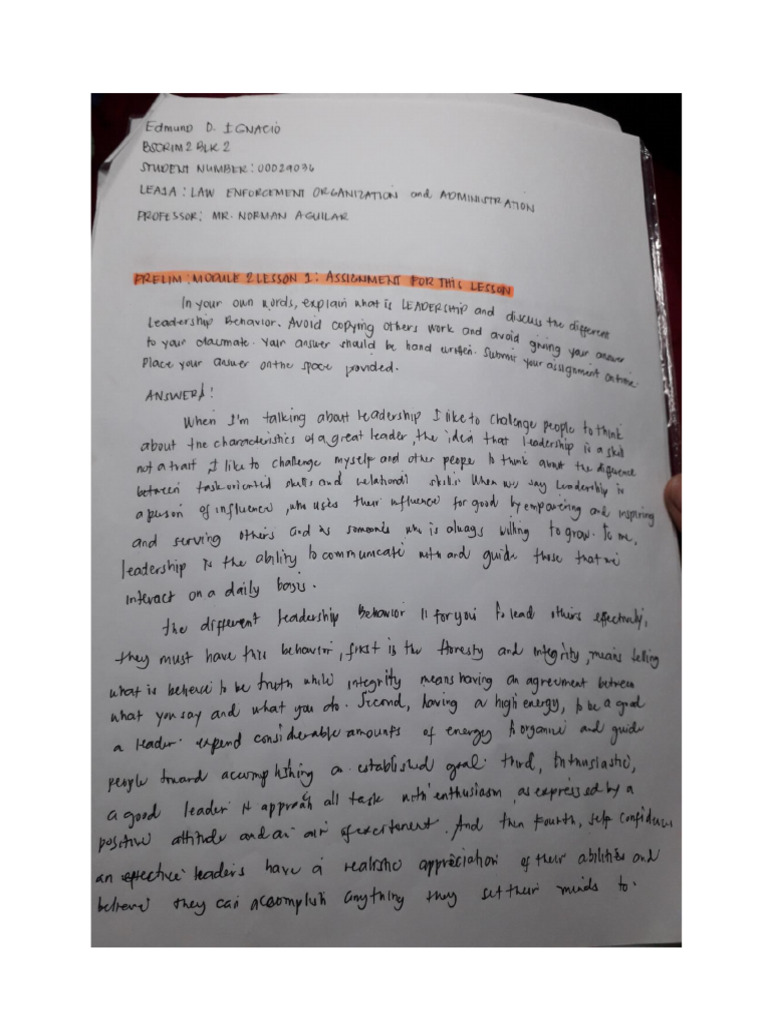 Edmund D. IGNACIO
BSCRIM 2 BLK 2
STUDENT NUMBER: 00029036
LEA1A: LAW ENFORCEMENT ORGANIZATION and ADMINISTRATION
PROFESSOR: MR. NORMAN AGUILAR
PRELIM: MODULE 2 LESSON 1: ASSIGNMENT FOR THIS LESSON
In your own words, explain what is LEADERSHIP and discuss the different
Leadership Behavior. Avoid copying others work and avoid giving your answer
to your classmate. Your answer should be hand written. Submit your assignment ontime.
Place your answer on the space provided.
ANSWER:
When I'm talking about leadership I like to challenge people to think
about the characteristics of a great leader, the idea that leadership is a skill
not a trait, I like to challenge myself and other people to think about the difference
between task oriented skills and relational skills. When we say leadership is
a person of influence, who uses their influence for good by empowering and inspiring
and serving others and is someone who is always willing to grow. To me,
leadership is the ability to communicate with and guide those that we
interact on a daily basis.
The different leadership Behavior is for you to lead others effectively,
they must have this behavior, first is the Honesty and integrity, means telling
what is believe to be truth while integrity means having an agreement between
what you say and what you do. Second, having a high energy, to be a good
a leader expend considerable amounts of energy to organize and guide
people toward accomplishing an established goal. Third, Enthusiastic,
a good leader is approach all task with enthusiasm, as expressed by a
positive attitude and an air of excitement. And then fourth, self confidence
an effective leaders have a realistic appreciation of their abilities and
believe they can accomplish anything they set their minds to.